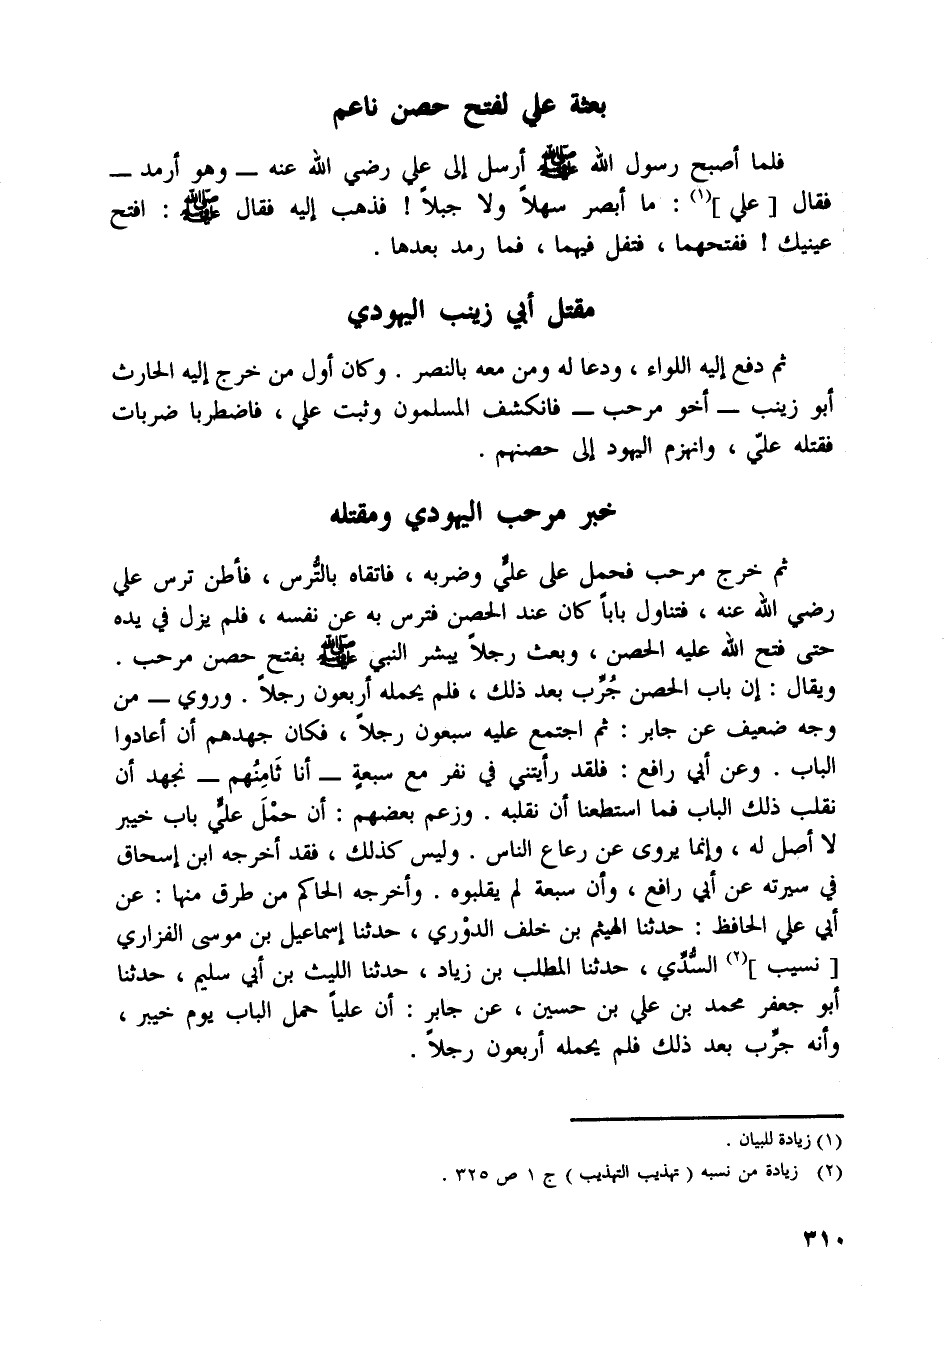 بعثة علي لفتح حصن ناعم
فلما أصبح رسول الله ﷺ أرسل إلى علي رضي الله عنه ــ وهو أرمد ــ
فقال [ علي ](١) : ما أبصر سهلاً ولا جبلاً ! فذهب إليه فقال ﷺ : افتح
عينيك ! ففتحهما ، فتفل فيهما ، فما رمد بعدها .
مقتل أبي زينب اليهودي
ثم دفع إليه اللواء ، ودعا له ومن معه بالنصر . وكان أول من خرج إليه الحارث
أبو زينب ــ أخو مرحب ــ فانكشف المسلمون وثبت علي ، فاضطربا ضربات
فقتله عليّ ، وانهزم اليهود إلى حصنهم .
خبر مرحب اليهودي ومقتله
ثم خرج مرحب فحمل على عليٍّ وضربه ، فاتقاه بالتُّرس ، فأطن ترس علي
رضي الله عنه ، فتناول باباً كان عند الحصن فترس به عن نفسه ، فلم يزل في يده
حتى فتح الله عليه الحصن ، وبعث رجلاً يبشر النبي ﷺ بفتح حصن مرحب .
ويقال : إن باب الحصن جُرِّب بعد ذلك ، فلم يحمله أربعون رجلاً . وروي ــ من
وجه ضعيف عن جابر : ثم اجتمع عليه سبعون رجلاً ، فكان جهدهم أن أعادوا
الباب . وعن أبي رافع : فلقد رأيتني في نفر مع سبعةٍ ــ أنا ثَامِنُهم ــ نجهد أن
نقلب ذلك الباب فما استطعنا أن نقلبه . وزعم بعضهم : أن حمْلَ عليٍّ باب خيبر
لا أصل له ، وإنما يروى عن رعاع الناس . وليس كذلك ، فقد أخرجه ابن إسحاق
في سيرته عن أبي رافع ، وأن سبعة لم يقلبوه . وأخرجه الحاكم من طرق منها : عن
أبي علي الحافظ : حدثنا الهيثم بن خلف الدوْري ، حدثنا إسماعيل بن موسى الفزاري
[ نسيب ](٢) السُّدِّي ، حدثنا المطلب بن زياد ، حدثنا الليث بن أبي سليم ، حدثنا
أبو جعفر محمد بن علي بن حسين ، عن جابر : أن علياً حمل الباب يوم خيبر ،
وأنه جرِّب بعد ذلك فلم يحمله أربعون رجلاً .
(١) زيادة للبيان .
(٢) زيادة من نسبه ( تهذيب التهذيب ) ج ١ ص ٣٢٥ .
٣١٠